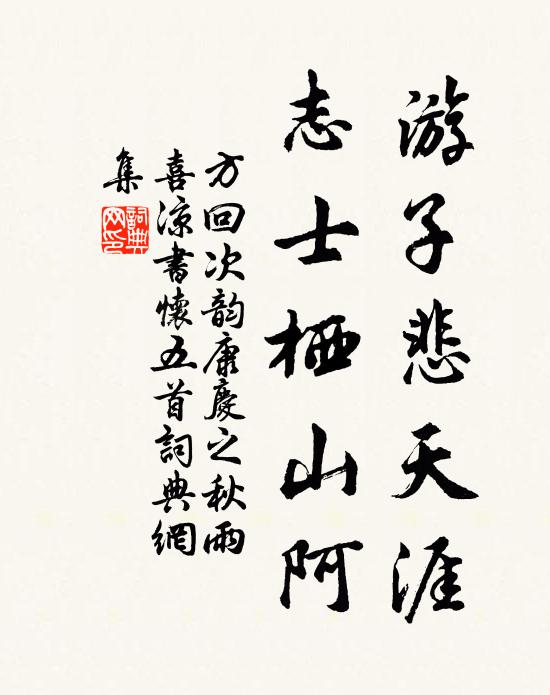 游子悲天涯
志士栖山阿
方回次韵康慶之秋雨
喜凉書懷五首詞典網
集
詞典
网印